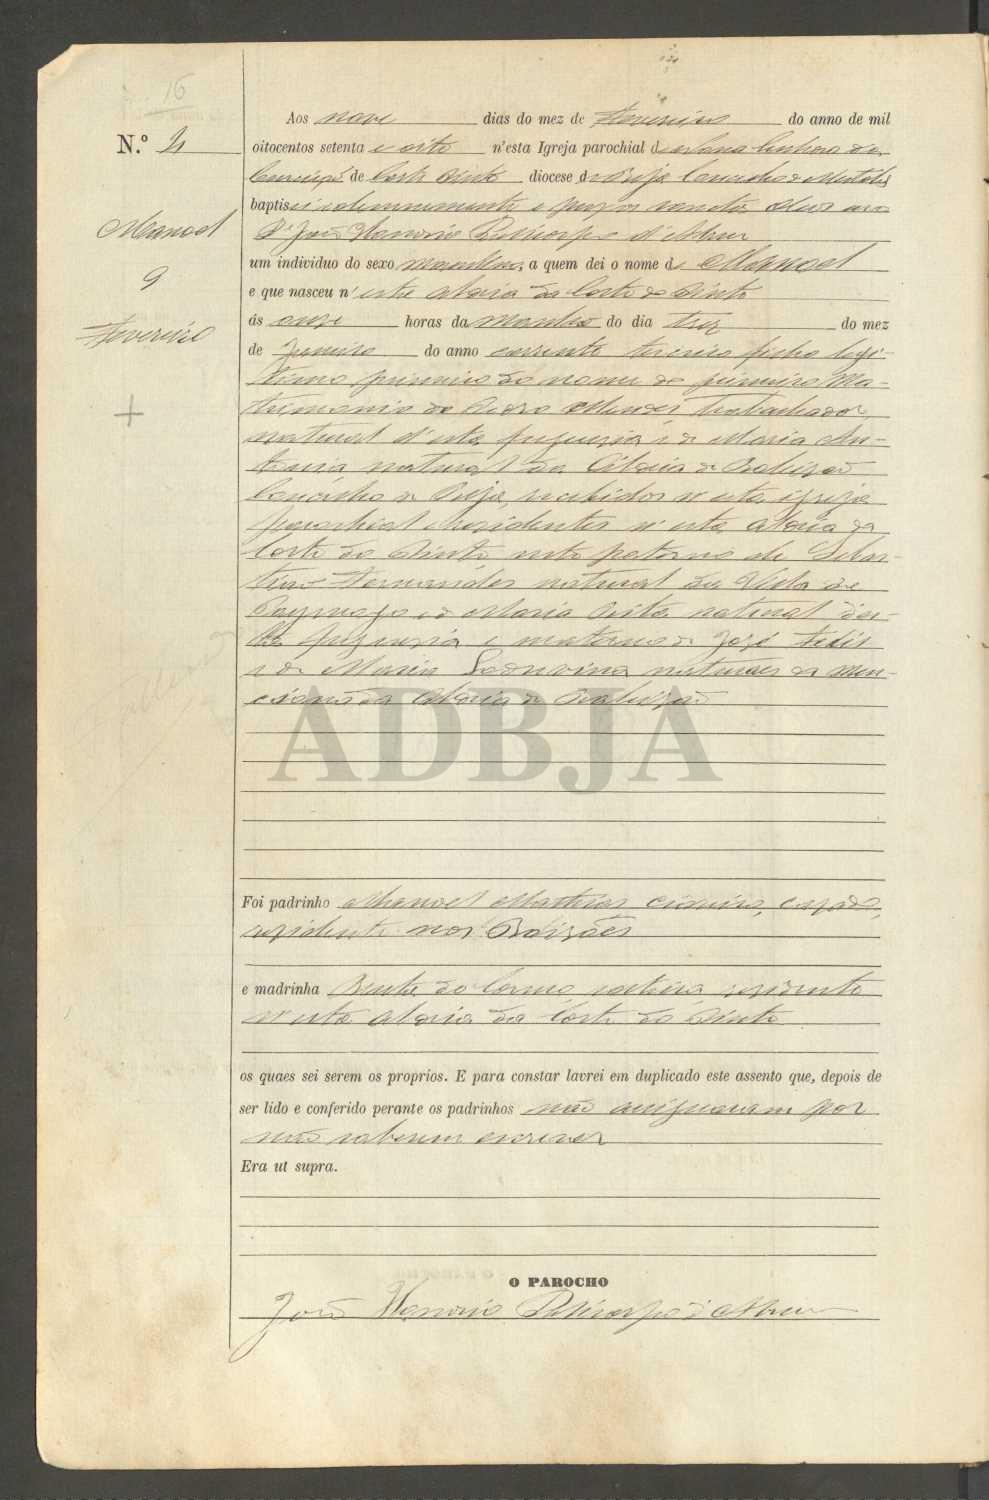 16
Aos nove dias do mez de Fevereiro do anno de mil
N.º 4
oitocentos setenta e oito n'esta Igreja parochial de Nossa Senhora da
Conceição de Corte do Pinto diocese de Beja Concelho de Mertola
baptisei solemnemente e puz os santos oleos eu o
P.e João Honorio Policarpo d'Abreu
Manoel
um individuo do sexo masculino, a quem dei o nome de Manoel
9
e que nasceu n'esta Aldeia da Corte do Pinto
Fevereiro
ás onze horas da manhã do dia trez do mez
de Janeiro do anno corrente terceiro filho legi-
timo primeiro do nome do primeiro Ma-
trimonio de Pedro Mendes, trabalhador,
natural d'esta freguezia e de Maria An-
tonia natural da Aldeia de Baleizão
Concelho de Beja, recebidos n'esta igreja
parochial e residentes n'esta aldeia da
Corte do Pinto neto paterno de Sebas-
tião Fernandes natural da Villa de
e de Maria Rita natural des-
ta freguezia e materno de José
e de Maria Ludovina naturaes da men-
cionada Aldeia de Baleizão
ADBJA
Foi padrinho Manoel Mathias, cazado,
residente nos
e madrinha Bento do Carmo solteira rezidente
n'esta Aldeia da Corte do Pinto
os quaes sei serem os proprios. E para constar lavrei em duplicado este assento que, depois de
ser lido e conferido perante os padrinhos não assignaram por
não saberem escrever
Era ut supra.
O PAROCHO
João Honorio Policarpo d'Abreu